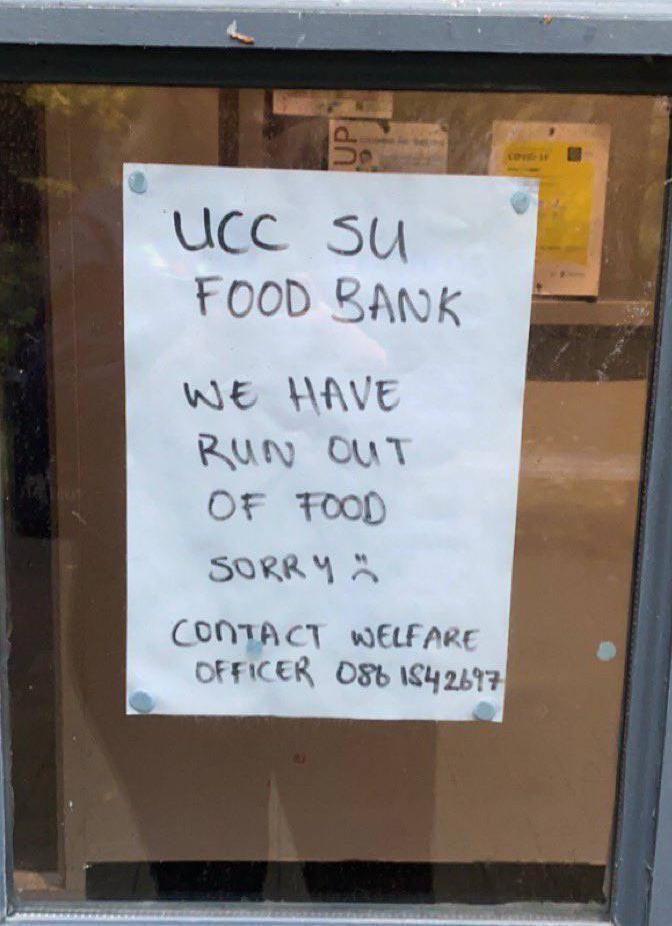 UP
COVID-19
UCC SU
FOOD BANK
WE HAVE
RUN OUT
OF FOOD
SORRY ☹
CONTACT WELFARE
OFFICER 086 1542697